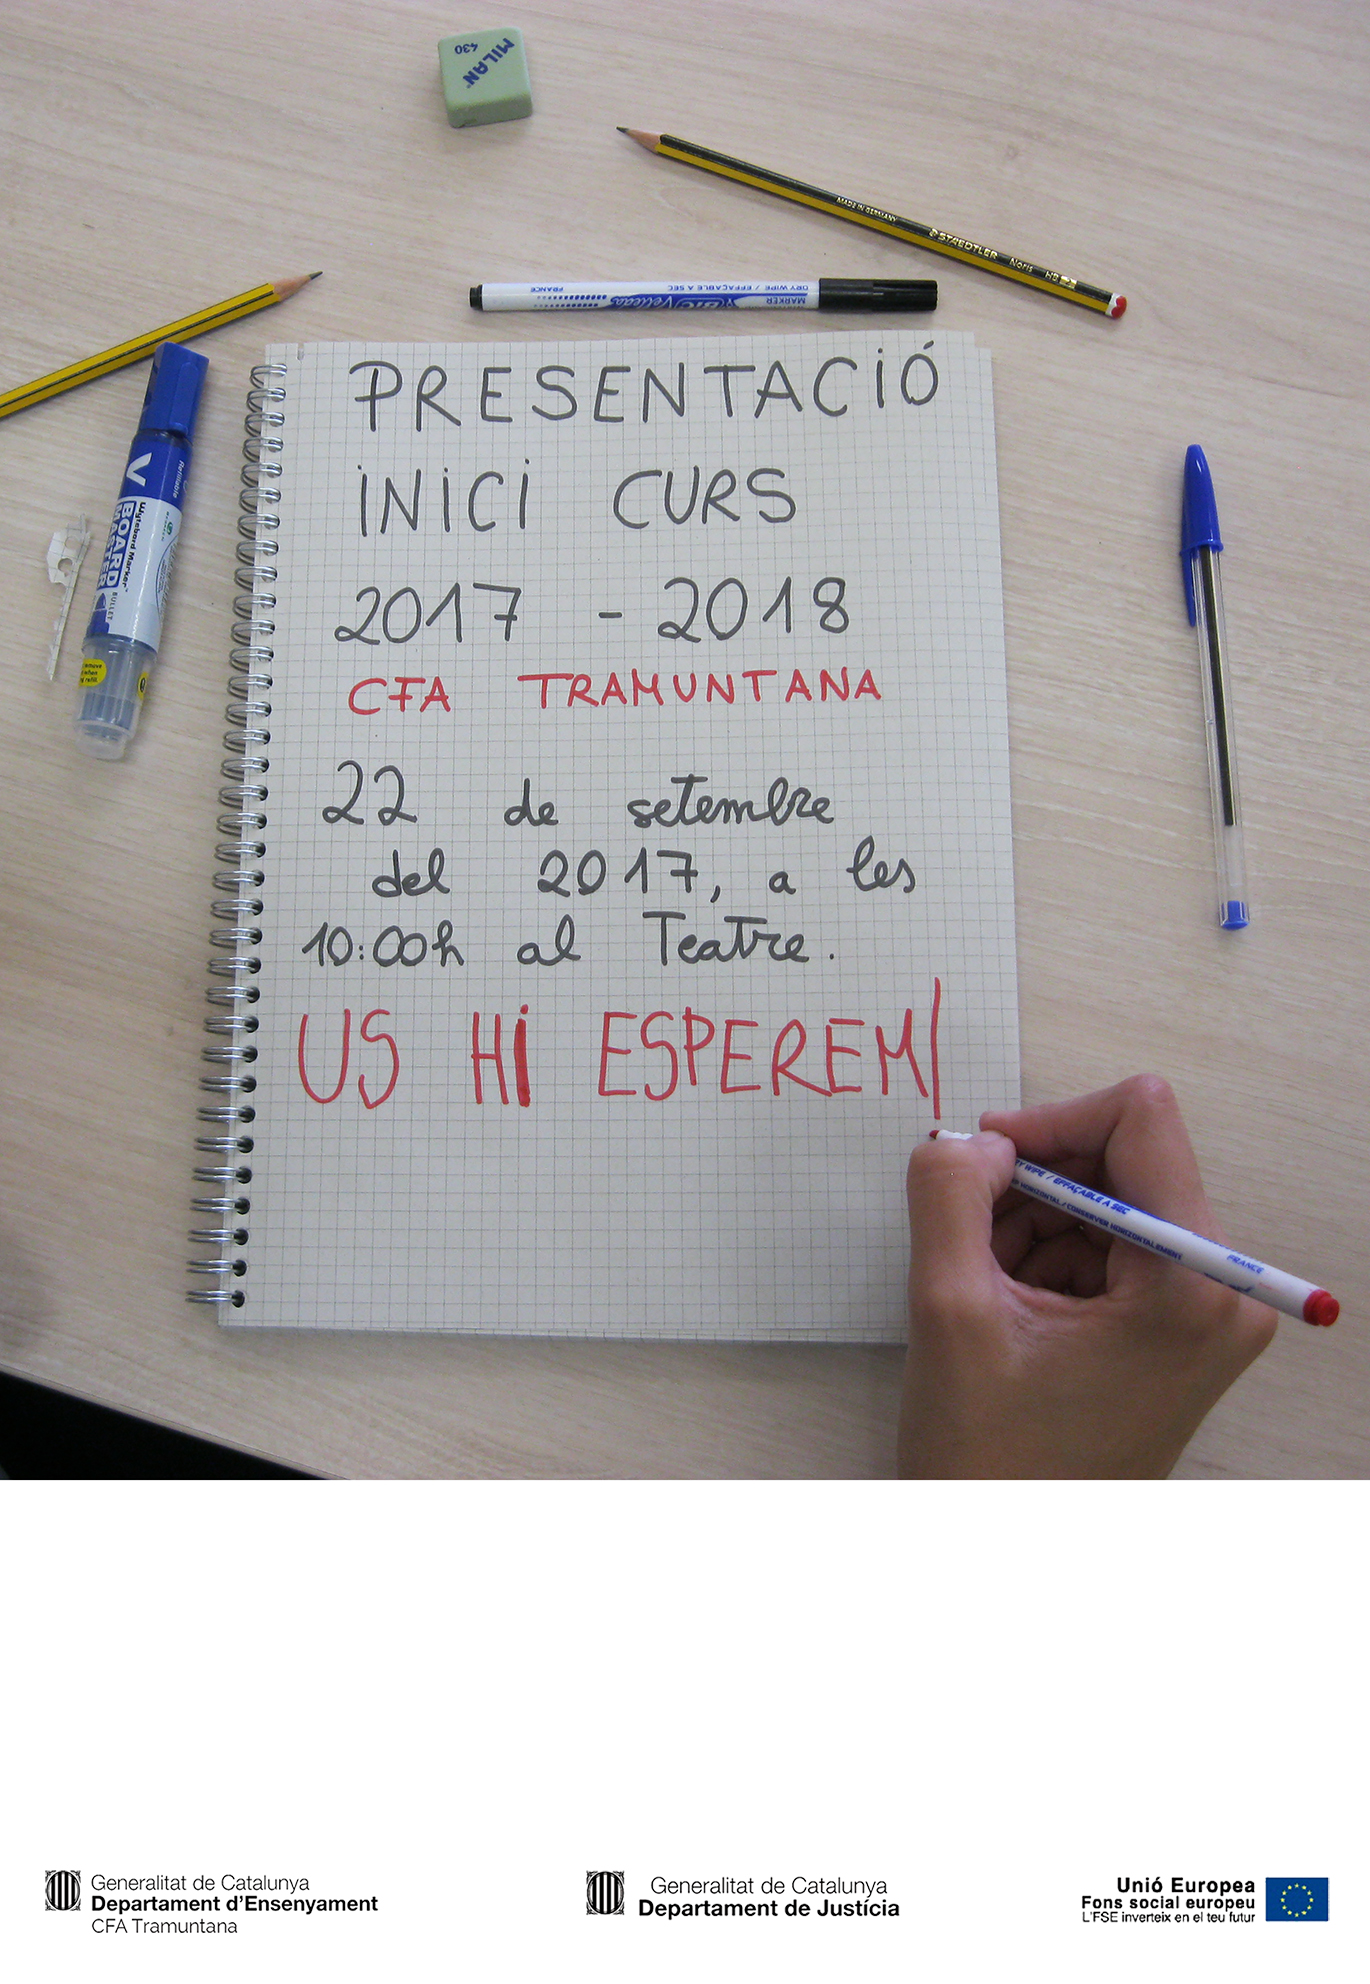 MILAN
430
MADE IN GERMANY
STAEDTLER Noris HB 2
MARKER
DRY WIPE / EFFAÇABLE A SEC
BIC Velleda
FRANCE
PRESENTACIÓ
INICI CURS
2017 - 2018
CFA TRAMUNTANA
22 de setembre
del 2017, a les
10:00h al Teatre.
US HI ESPEREM
V
Refillable
BOARD
MASTER
Wyteboard Marker
BULLET
DRY WIPE / EFFAÇABLE A SEC
HORIZONTAL / CONSERVER HORIZONTALEMENT
FRANCE
Generalitat de Catalunya
Departament d'Ensenyament
CFA Tramuntana
Generalitat de Catalunya
Departament de Justícia
Unió Europea
Fons social europeu
L'FSE inverteix en el teu futur